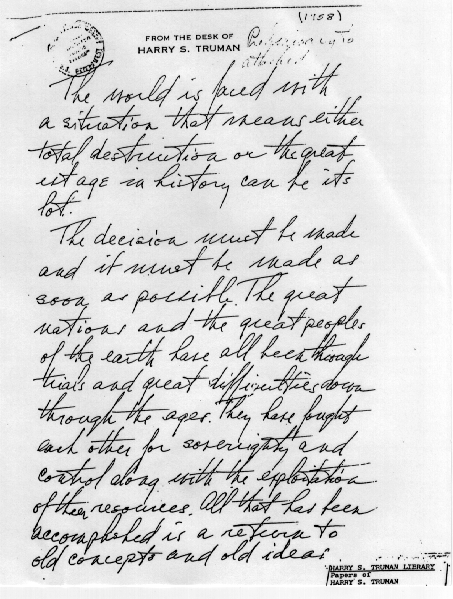 (1958)
FROM THE DESK OF
HARRY S. TRUMAN
attached
The world is faced with
a situation that means either
total destruction or the great
est age in history can be its
lot.
The decision must be made
and it must be made as
soon as possible. The great
nations and the great peoples
of the earth have all been through
trials and great difficulties down
through the ages. They have fought
each other for soverignty and
control along with the exploitation
of their resources. All that has been
accomplished is a return to
old concepts and old ideas
HARRY S. TRUMAN LIBRARY
Papers of
HARRY S. TRUMAN